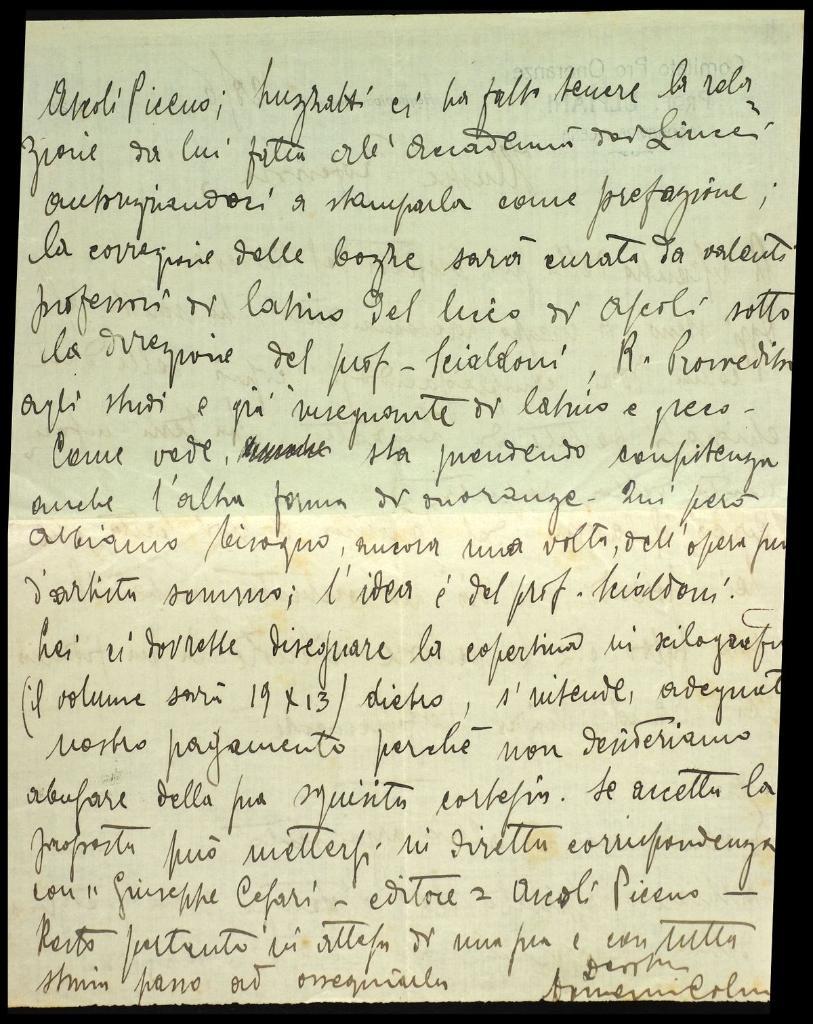 Ascoli Piceno; Luzzatti ci ha fatto tenere la rela
zione da lui fatta all' Accademia dei Lincei
autorizzandoci a stamparla come prefazione;
la correzione delle bozze sarà curata da valenti
professori di latino del liceo di Ascoli sotto
la direzione del prof - Scialdoni, R. Provveditore
agli studi e già insegnante di latino e greco -
Come vede, sta prendendo consistenza
anche l'altra forma di onoranze - Qui però
abbiamo bisogno, ancora una volta, dell'opera sua
d'artista sommo; l'idea è del prof - Scialdoni.
Lei ci dovrebbe disegnare la copertina in xilografia
(il volume sarà 19 x 13) dietro, s'intende, adeguato
nostro pagamento perchè non desideriamo
abusare della sua squisita cortesia. Se accetta la
proposta può mettersi in diretta corrispondenza
con " Giuseppe Cesari - editore = Ascoli Piceno —
Resto pertanto in attesa di una sua e con tutta
stima passo ad ossequiarla